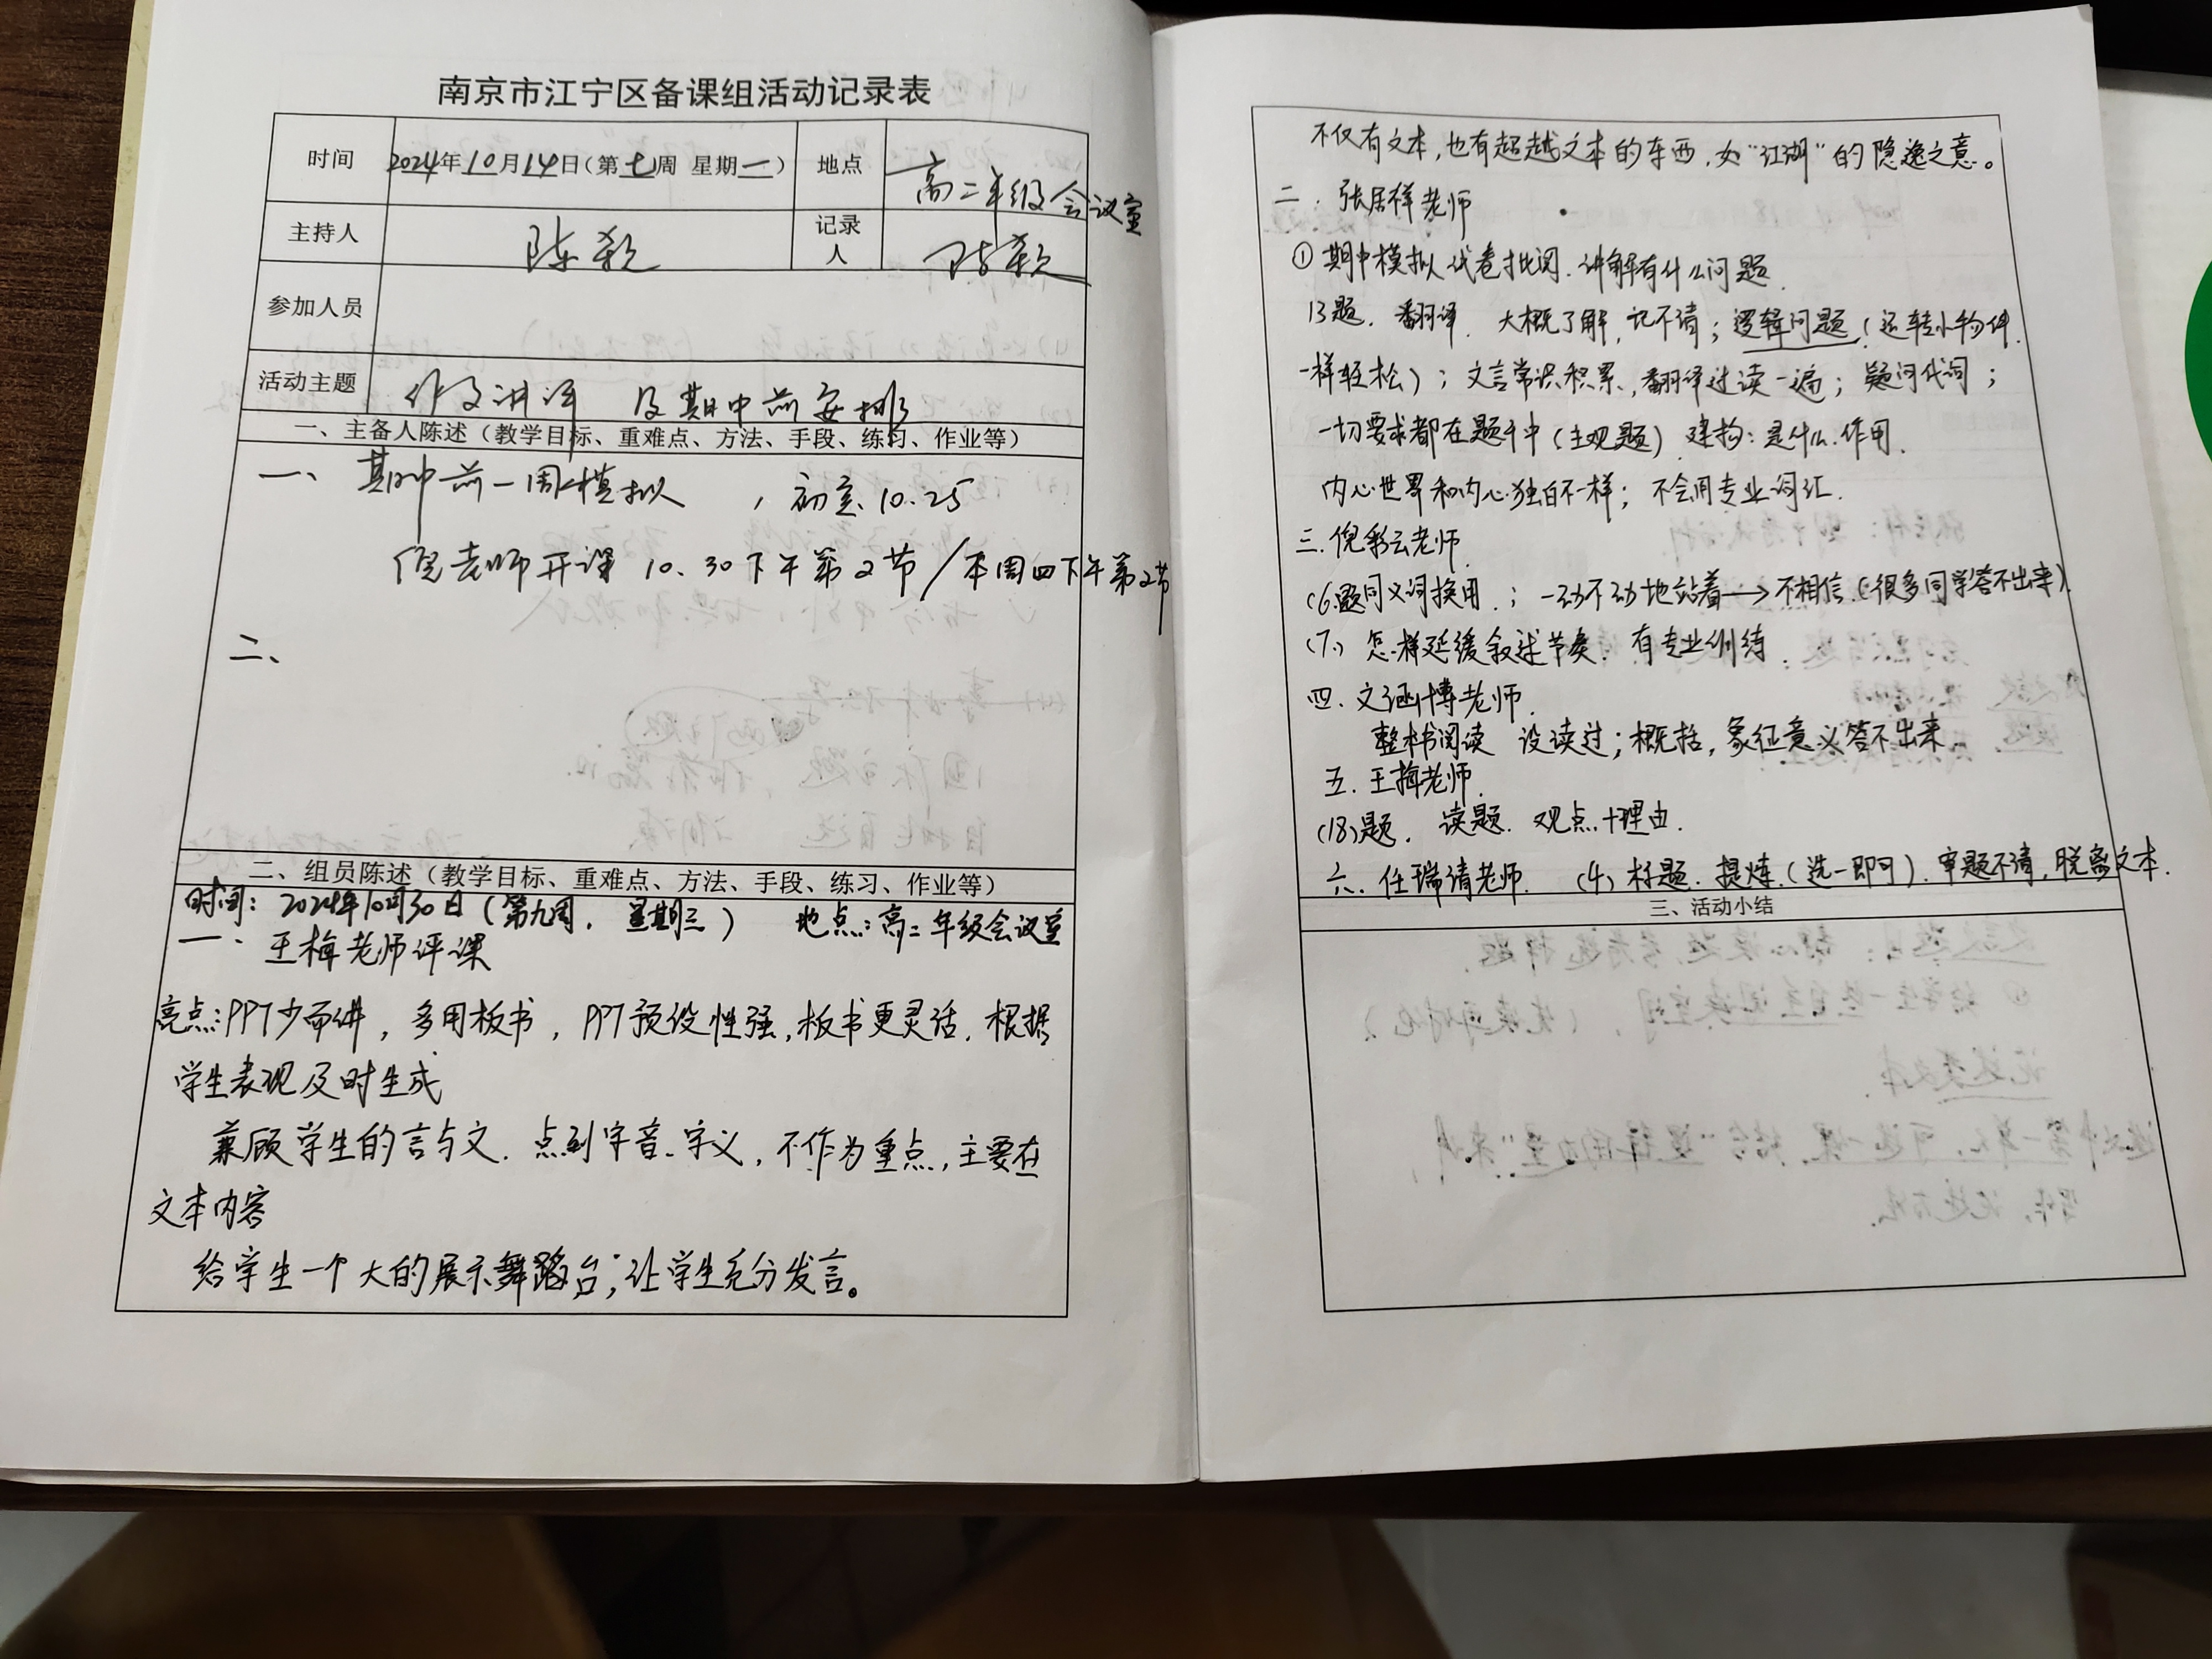 南京市江宁区备课组活动记录表
时间 2024年10月14日(第七周 星期一) 地点 高二年级会议室
主持人 陈颖 记录人 陈颖
参加人员
活动主题 作文讲评 及期中前安排
一、主备人陈述(教学目标、重难点、方法、手段、练习、作业等)
一、期中前一周模拟 ,初定10.25
倪老师开课 10.30下午第2节/本周四下午第2节
二、
二、组员陈述(教学目标、重难点、方法、手段、练习、作业等)
时间:2024年10月30日(第九周,星期三) 地点:高二年级会议室
一、王梅老师评课
亮点:PPT少而讲,多用板书,PPT预设性强,板书更灵活.根据
学生表现及时生成
兼顾学生的言与文.点到字音、字义,不作为重点,主要在
文本内容
给学生一个大的展示舞蹈台;让学生充分发言。
不仅有文本,也有超越文本的东西,如"江湖"的隐逸之意。
二.张居祥老师
①期中模拟试卷批阅.讲解有什么问题.
13题.翻译.大概了解,记不清;逻辑问题!(运转小物件
一样轻松);文言常识积累、翻译过读一遍;疑问代词;
一切要求都在题干中(主观题).建构:是什么.作用.
内心世界和内心独白不一样;不会用专业词汇.
三.倪彩云老师.
(6.题同义词换用.;一动不动地站着→不相信.(很多同学答不出来).
(7.)怎样延缓叙述节奏.有专业训练.
四.文涵博老师.
整本书阅读 没读过;概括,象征意义答不出来.
五.王梅老师.
(18)题.读题.观点+理由.
六.任瑞清老师. (4)标题.提炼.(选一即可).审题不请,脱离文本.
三、活动小结